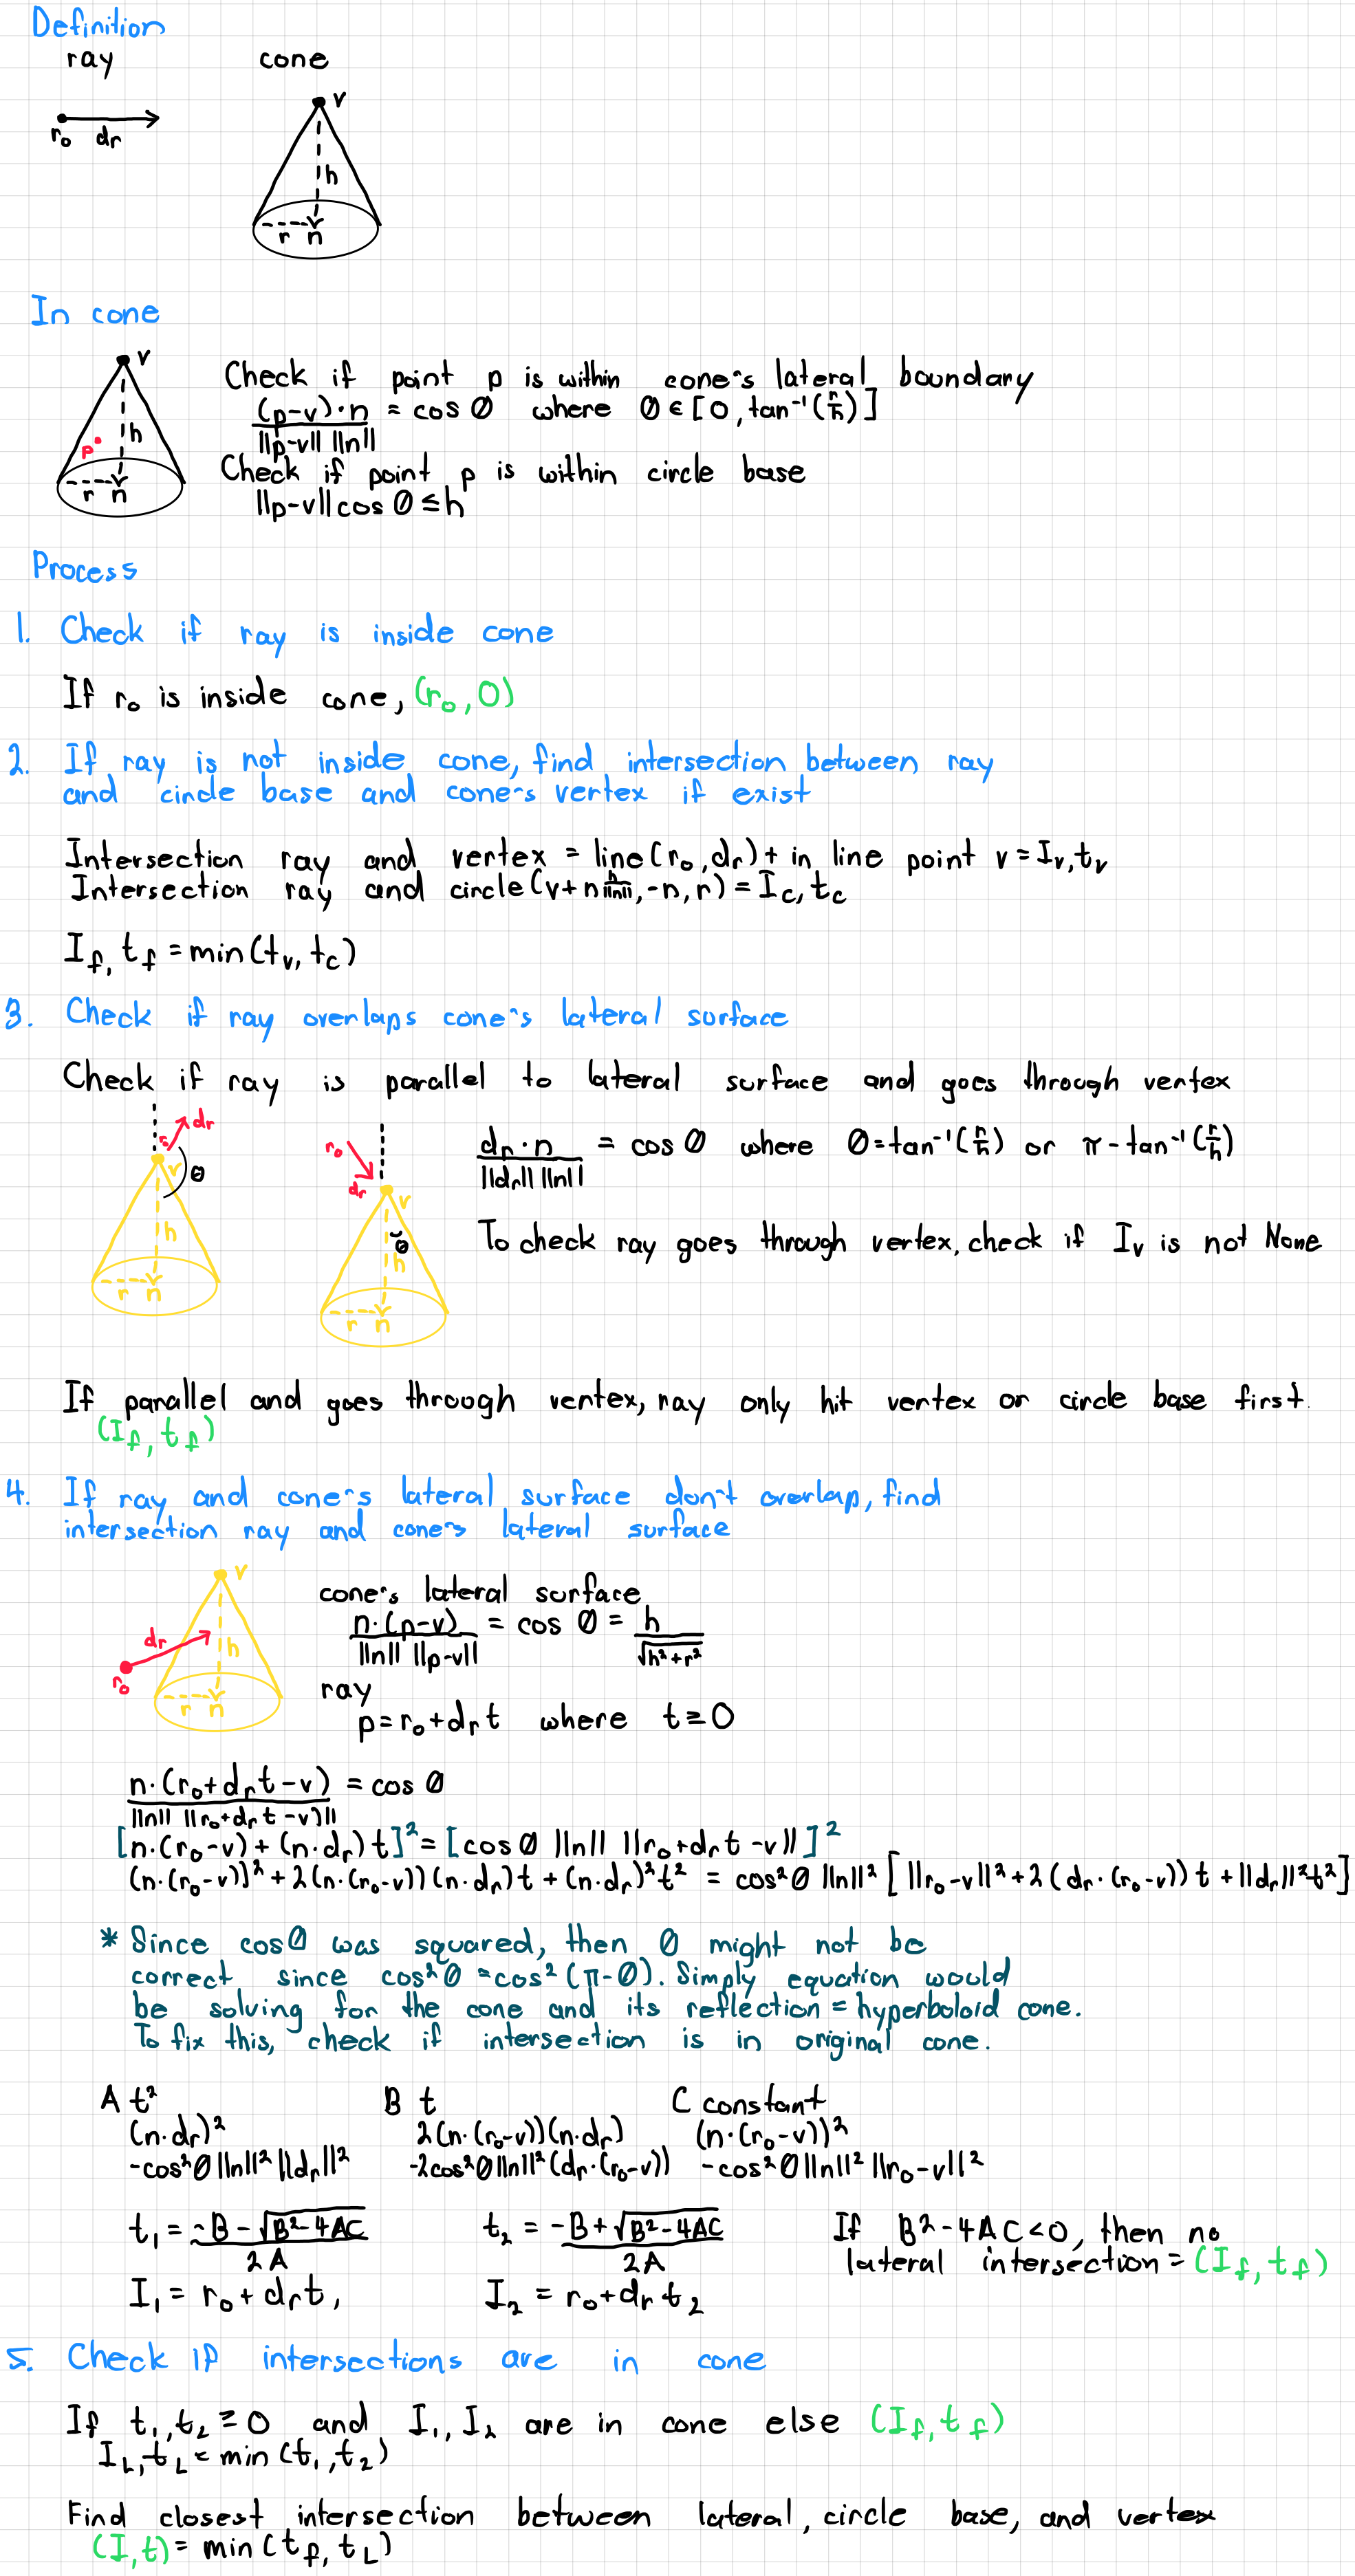 Definition
ray cone
v
r₀ dr
h
r n
In cone
v
Check if point p is within cone's lateral boundary
(p-v)·n / ||p-v|| ||n|| = cos θ where θ ∈ [0, tan⁻¹(r/h)]
p h
Check if point p is within circle base
r n
||p-v|| cos θ ≤ h
Process
1. Check if ray is inside cone
If r₀ is inside cone, (r₀, 0)
2. If ray is not inside cone, find intersection between ray
and circle base and cone's vertex if exist
Intersection ray and vertex = line(r₀, dr) + in line point v = Iv, tv
Intersection ray and circle(v+n h/||n||, -n, r) = Ic, tc
If, tf = min(tv, tc)
3. Check if ray overlaps cone's lateral surface
Check if ray is parallel to lateral surface and goes through vertex
r₀ dr v θ h r n
r₀ dr v θ h r n
dr·n / ||dr|| ||n|| = cos θ where θ = tan⁻¹(r/h) or π - tan⁻¹(r/h)
To check ray goes through vertex, check if Iv is not None
If parallel and goes through vertex, ray only hit vertex or circle base first.
(If, tf)
4. If ray and cone's lateral surface don't overlap, find
intersection ray and cone's lateral surface
v dr r₀ h r n
cone's lateral surface
n·(p-v) / ||n|| ||p-v|| = cos θ = h / √h²+r²
ray
p = r₀ + dr t where t ≥ 0
n·(r₀+dr t-v) / ||n|| ||r₀+dr t-v)|| = cos θ
[n·(r₀-v) + (n·dr) t]² = [cos θ ||n|| ||r₀+dr t -v||]²
(n·(r₀-v))² + 2(n·(r₀-v))(n·dr)t + (n·dr)²t² = cos²θ ||n||² [||r₀-v||² + 2(dr·(r₀-v))t + ||dr||²t²]
* Since cosθ was squared, then θ might not be
correct since cos²θ = cos²(π-θ). Simply equation would
be solving for the cone and its reflection = hyperboloid cone.
To fix this, check if intersection is in original cone.
A t² B t C constant
(n·dr)² 2(n·(r₀-v))(n·dr) (n·(r₀-v))²
-cos²θ ||n||² ||dr||² -2cos²θ ||n||² (dr·(r₀-v)) -cos²θ ||n||² ||r₀-v||²
t₁ = -B - √B²-4AC / 2A t₂ = -B + √B²-4AC / 2A If B²-4AC<0, then no
lateral intersection = (If, tf)
I₁ = r₀ + dr t₁ I₂ = r₀ + dr t₂
5. Check if intersections are in cone
If t₁, t₂ ≥ 0 and I₁, I₂ are in cone else (If, tf)
IL, tL = min(t₁, t₂)
Find closest intersection between lateral, circle base, and vertex
(I, t) = min(tf, tL)